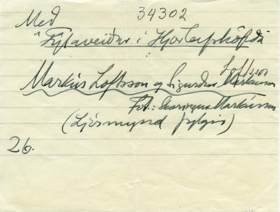 34302
Með
"Fýlaveiðar í Hjörleifshöfða
Markús Loftsson og Sigurður Loftsson
Markússon
(Ljósmynd fylgir)
26.